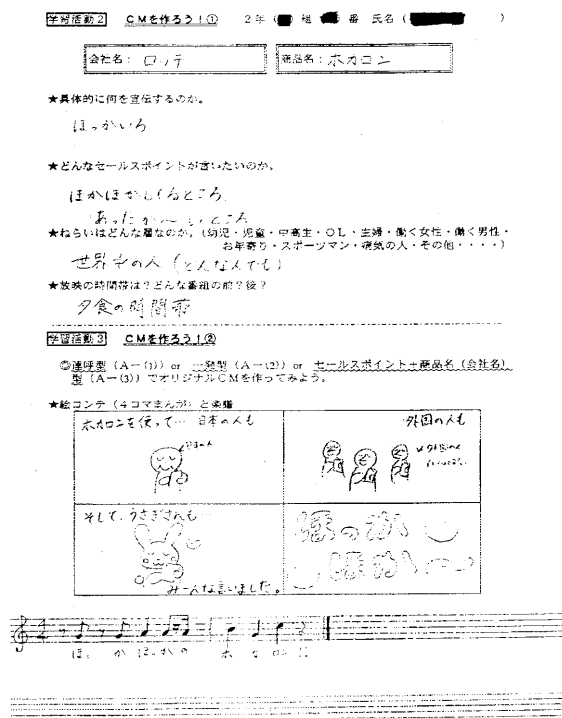 学習活動2 CMを作ろう!① 2年( 組 番 氏名( )
会社名: ロッテ 商品名:ホカロン
★具体的に何を宣伝するのか。
ほっかいろ
★どんなセールスポイントが言いたいのか。
ほかほかしてるところ
あったか〜いところ
★ねらいはどんな層なのか。(幼児・児童・中高生・OL・主婦・働く女性・働く男性・
お年寄り・スポーツマン・病気の人・その他・・・・)
世界中の人(どんなんでも)
★放映の時間帯は?どんな番組の前?後?
夕食の時間帯
学習活動3 CMを作ろう!②
◎連呼型(A−(1)) or 一発型(A−(2)) or セールスポイント+商品名(会社名)
型(A−(3))でオリジナルCMを作ってみよう。
★絵コンテ(4コマまんが)と楽譜
ホカロンを使って… 日本の人も
日本の人
外国の人も
外国の人
そして、うさぎさんも…
みーんな言いました。
ほっ か ほっ か の ホ カ ロン